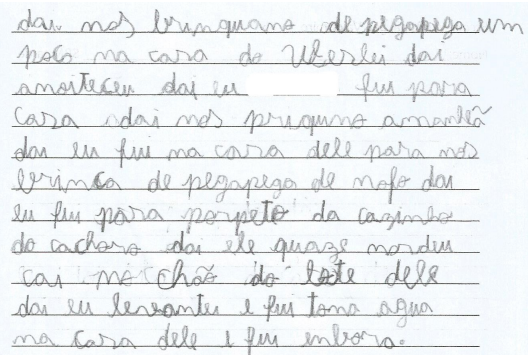 dai nos brinquano de pegapega um
poco na casa do Uberlei dai
anoiteceu dai eu fui para
casa dai nos priguno amanhã
dai eu fui na casa dele para nos
brinca de pegapega de nofo dai
eu fui para porpeto da cazinho
do cachoro dai ele quaze mordeu
cai no chão do lote dele
dai eu levantei e fui toma agua
na casa dele e fui enbora.